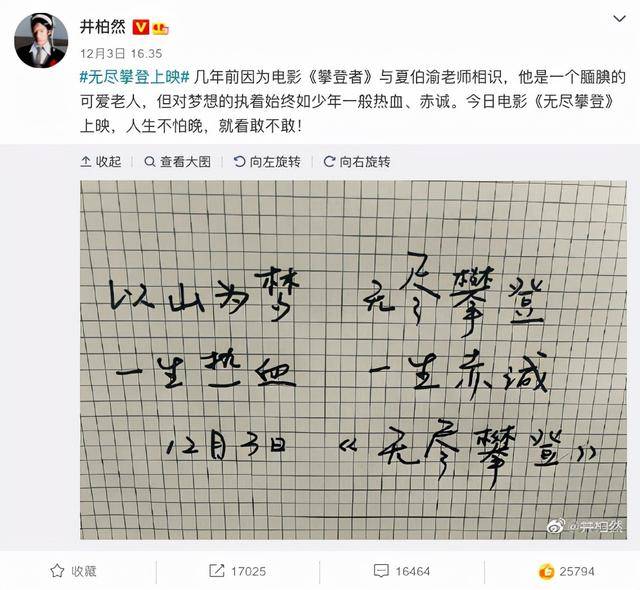 井柏然
12月3日 16:35
#无尽攀登上映# 几年前因为电影《攀登者》与夏伯渝老师相识，他是一个腼腆的
可爱老人，但对梦想的执着始终如少年一般热血、赤诚。今日电影《无尽攀登》
上映，人生不怕晚，就看敢不敢！
收起 查看大图 向左旋转 向右旋转
以山为梦 无尽攀登
一生热血 一生赤诚
12月3日 《无尽攀登》
@井柏然
收藏 17025 16464 25794